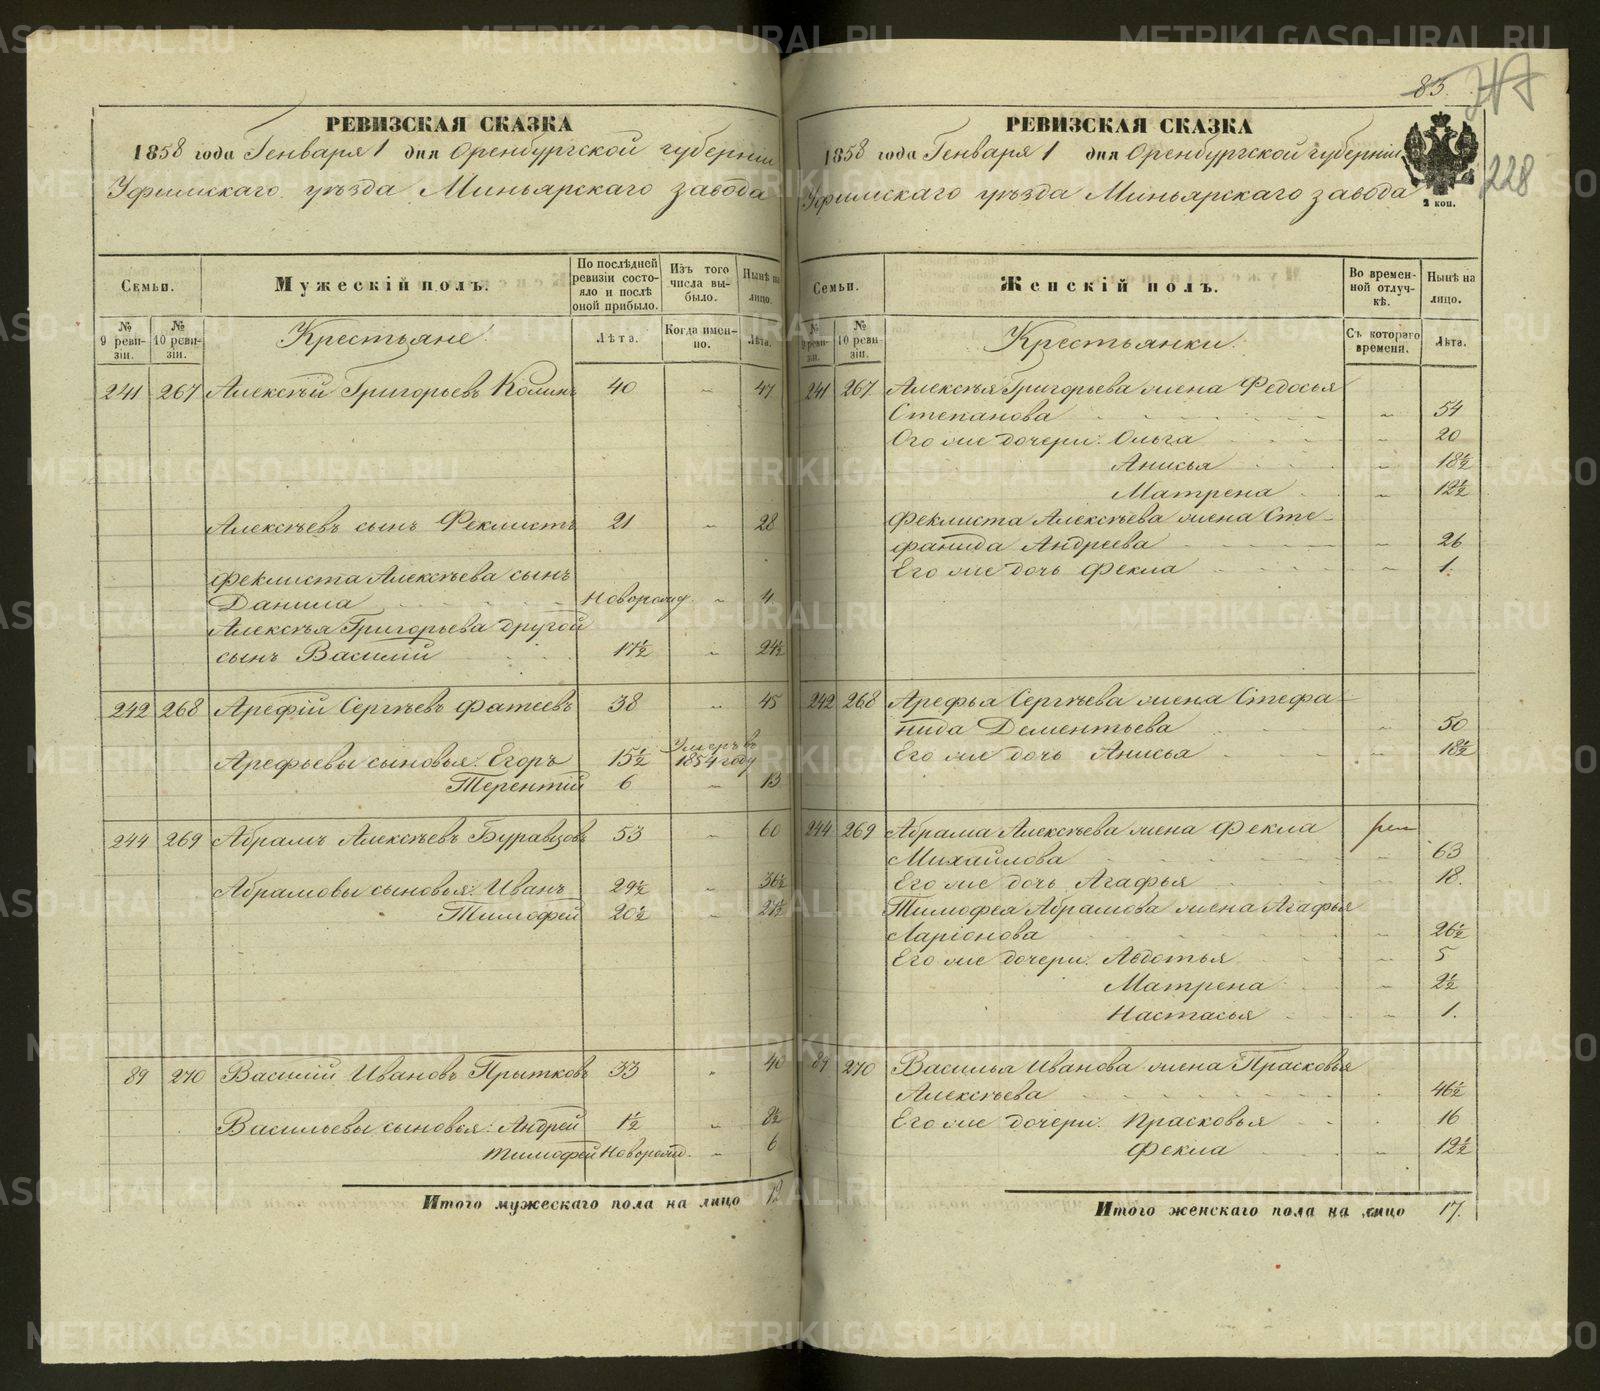 РЕВИЗСКАЯ СКАЗКА
1858 года Генваря 1 дня Оренбургской губернии
Уфимскаго уѣзда Миньярскаго завода
Семьи.
Мужескій полъ.
По послѣдней ревизіи состояло и послѣ оной прибыло.
Изъ того числа выбыло.
Нынѣ на лицо.
№ 9 ревизіи.
№ 10 ревизіи.
Крестьяне.
Лѣта.
Когда именно.
Лѣта.
241 267 Алексѣй Григорьевъ 40 „ 47
Алексѣевъ сынъ Феклистъ 21 „ 28
Феклиста Алексѣева сынъ
Данила Новорожд. „ 4
Алексѣя Григорьева другой
сынъ Василій 17½ „ 24½
242 268 Арефій Сергѣевъ Фатеевъ 38 „ 45
Арефьевы сыновья: Егоръ 15½ Умеръ въ 1854 году
Терентій 6 „ 13
244 269 Абрамъ Алексѣевъ Буравцовъ 53 „ 60
Абрамовы сыновья: Иванъ 29½ „ 36½
Тимофей 20½ „ 27½
89 270 Василій Ивановъ Прытковъ 33 „ 40
Васильевы сыновья: Андрей 1½ „ 8½
Тимофей Новорожд. „ 6
Итого мужескаго пола на лицо 12
83.
228
РЕВИЗСКАЯ СКАЗКА
1858 года Генваря 1 дня Оренбургской губерніи
Уфимскаго уѣзда Миньярскаго завода
2 коп.
Семьи.
Женскій полъ.
Во временной отлучкѣ.
Нынѣ на лицо.
№ 9 ревизіи.
№ 10 ревизіи.
Крестьянки.
Съ котораго времени.
Лѣта.
241 267. Алексѣя Григорьева жена Федосья
Степанова „ 54
Его же дочери: Ольга „ 20
Анисья „ 18½
Матрена „ 12½
Феклиста Алексѣева жена Сте-
фанида Андреева „ 26
Его же дочь Фекла „ 1.
242 268 Арефья Сергѣева жена Стефа-
нида Дементьева „ 50
Его же дочь Анисья „ 18½
244 269 Абрама Алексѣева жена Фекла
Михайлова „ 63
Его же дочь Агафья „ 18.
Тимофея Абрамова жена Агафья
Ларіонова „ 26½
Его же дочери: Авдотья „ 5
Матрена „ 2½
Настасья „ 1.
89 270 Василья Иванова жена Прасковья
Алексѣева „ 46½
Его же дочери: Прасковья „ 16
Фекла „ 12½
Итого женскаго пола на лицо 17.
METRIKI.GASO-URAL.RU